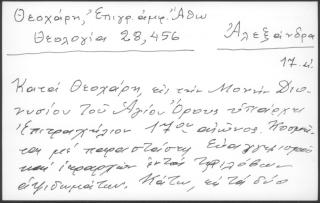 Θεοχάρη, Ἐπιγρ. ἀμφ. Ἄθω
Θεολογία 28, 456
Ἀλεξάνδρα
17. αἰ.
Κατά Θεοχάρη, εἰς τήν Μονήν Διο-
νυσίου τοῦ Ἁγίου Ὄρους ὑπάρχει
ἐπιτραχήλιον 17ου αἰῶνος. Κοσμεῖ-
ται μέ παραστάσεις Εὐαγγελισμοῦ
καί ἱεραρχῶν ἐντός τριλόβων
ἀψιδωμάτων. Κάτω, εἰς τά δύο